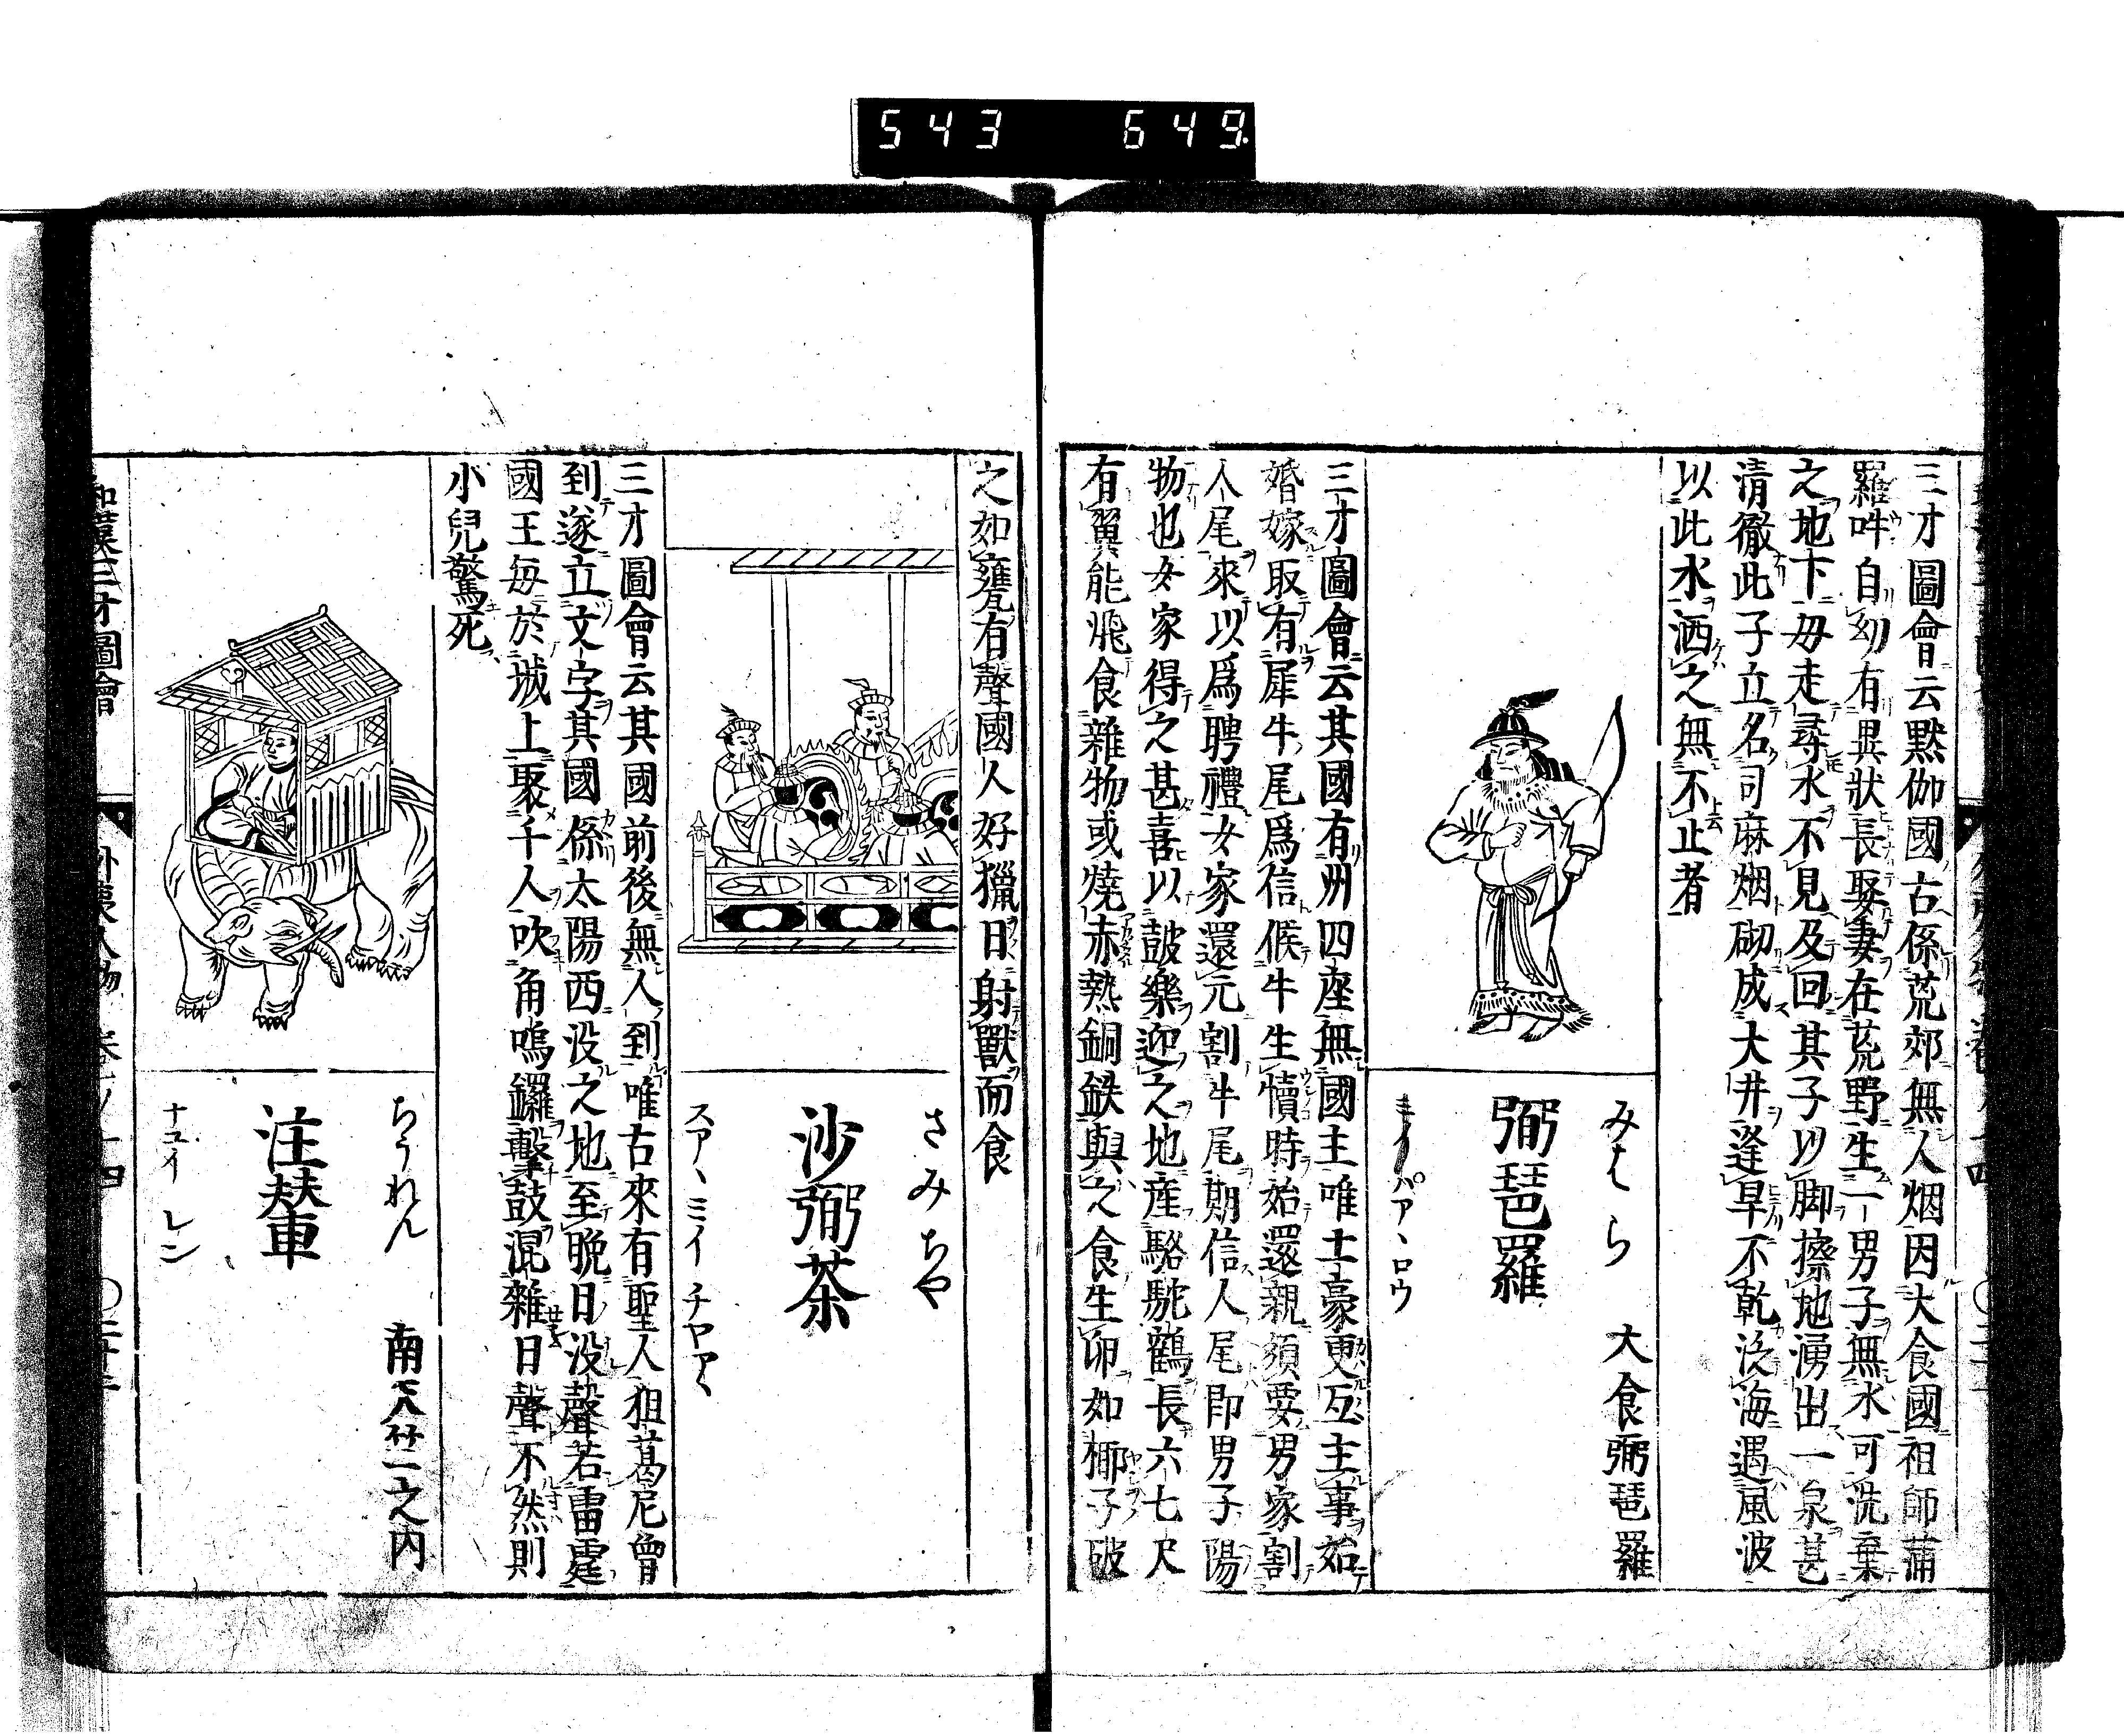 543 649
三才圖會云黙伽國古係荒郊無人烟因大食國祖師蒲
羅吽自幼有異狀長娶妻在荒野生一男子無水可洗棄
之地下毋走尋水不見及回其子以脚擦地湧出一泉甚
清徹此子立名司麻烟砌成大井逢旱不乾泛海遇風波
以此水洒之無不止者
みはら 大食弼琶羅
弼琶羅
三才圖會云其國有州四座無國主唯土豪更互主事始
婚嫁取有犀牛尾爲信候牛生犢時始還親須要男家割
人尾來以爲聘禮女家還元割牛尾期信人尾即男子陽
物也女家得之甚喜以皷樂迎之地産駱駝鶴長六七尺
有翼能飛食雜物或燒赤熱銅鉄與之食生卵如椰子破
之如甕有聲國人好獵日射獸而食
さみちや
沙弼茶
スアヽミイチヤアヽ
三才圖會云其國前後無人到唯古來有聖人狙葛尼曾
到遂立文字其國係太陽西没之地至晩日没聲若雷霆
國王毎於城上聚千人吹角鳴鑼撃鼓混雜日聲不然則
小兒驚死
ちうれん 南天竺之内
注輦
チユイ レン
和漢三才圖會